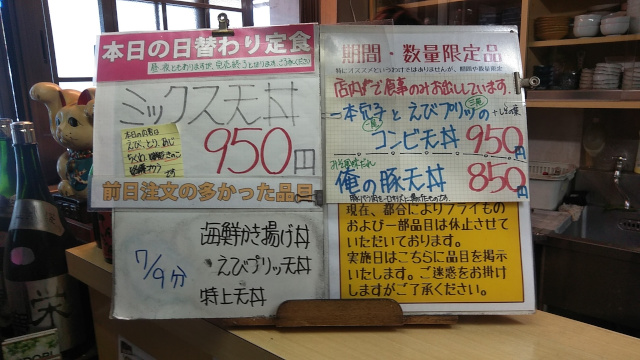 本日の日替わり定食
昼・夜ともありますが、完売続きとはります。ご了承ください
ミックス天丼
本日の内容は
えび、とり、あじ
950円
前日注文の多かった品目
7/9分
海鮮かき揚げ丼
・えびプリッ天丼
特上天丼
期間・数量限定品
特にオススメというわけではありませんが、期間や数量限定
店内で食事のみお出ししています。
一本穴子とえびプリッの
コンビ天丼 950円
俺の豚天丼 850円
現在、都合によりフライもの
および一部品目は休止させて
いただいております。
実施日はこちらに品目を掲示
いたします。ご迷惑をお掛け
しますがご了承ください。